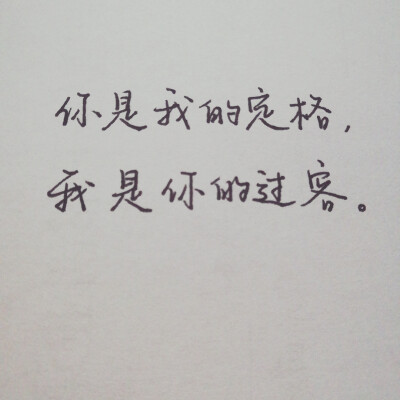 你是我的定格，
我是你的过客。